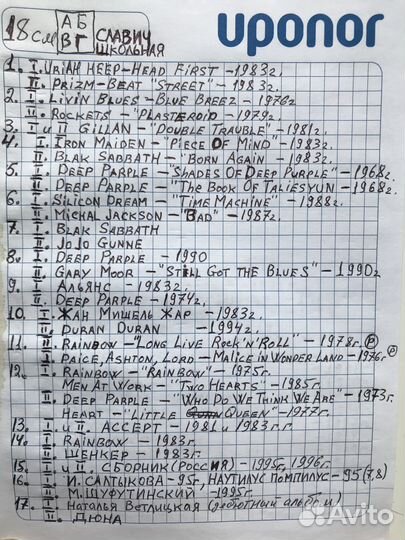 18см
А Б
В Г
СЛАВИЧ
ШКОЛЬНАЯ
uponor
1. I. URIAH HEEP-HEAD FIRST - 1983г.
II. PRIZM-BEAT "STREET" - 1983г.
2. I. LIVIN BLUES-BLUE BREEZ - 1976г
II. ROCKETS - "PLASTEROID" - 1979г.
3. I и II GILLAN - "DOUBLE TRAUBLE" - 1981г.
4. I. IRON MAIDEN - "PIECE OF MIND" - 1983г.
II. BLAK SABBATH - "BORN AGAIN" - 1983г.
5. I. DEEP PARPLE - "SHADES OF DEEP PURPLE" - 1968г.
II. DEEP PARPLE - "THE BOOK OF TALIESYUN - 1968г.
6. I. SILICON DREAM - "TIME MACHINE" - 1988г.
II. MICHAL JACKSON - "BAD" - 1987г.
7. I. BLAK SABBATH
II. JOJO GUNNE
8. I. DEEP PARPLE - 1990
II. GARY MOOR - "STILL GOT THE BLUES" - 1990г
9. I. АЛЬЯНС - 1983г.
II. DEEP PARPLE - 1974г.
10. I. ЖАН МИШЕЛЬ ЖАР - 1983г.
II. DURAN DURAN - 1994г.
11. I. RAINBOW - "LONG LIVE ROCK'N'ROLL" - 1978г. Р
II. PAICE, ASHTON, LORD - MALICE IN WONDER LAND - 1976г Р
12. I. RAINBOW - "RAINBOW" - 1975г.
MEN AT WORK - "TWO HEARTS" - 1985г.
II. DEEP PARPLE - "WHO DO WE THINK WE ARE" - 1973г.
HEART - "LITTLE QUEEN" - 1977г.
13. I и II. ACCEPT - 1981 и 1983г.г.
14. I. RAINBOW - 1983г.
II. ШЕНКЕР - 1983г.
15. I и II. СБОРНИК (РОССИЯ) - 1995г, 1996г.
16. I. И. САЛТЫКОВА - 95г, НАУТИЛУС ПОМПИЛУС - 95 (7,8)
II. М. ШУФУТИНСКИЙ - 1995г.
17. I. НАТАЛЬЯ ВЕТЛИЦКАЯ (дебютный альб.
II. ДЮНА
Avito